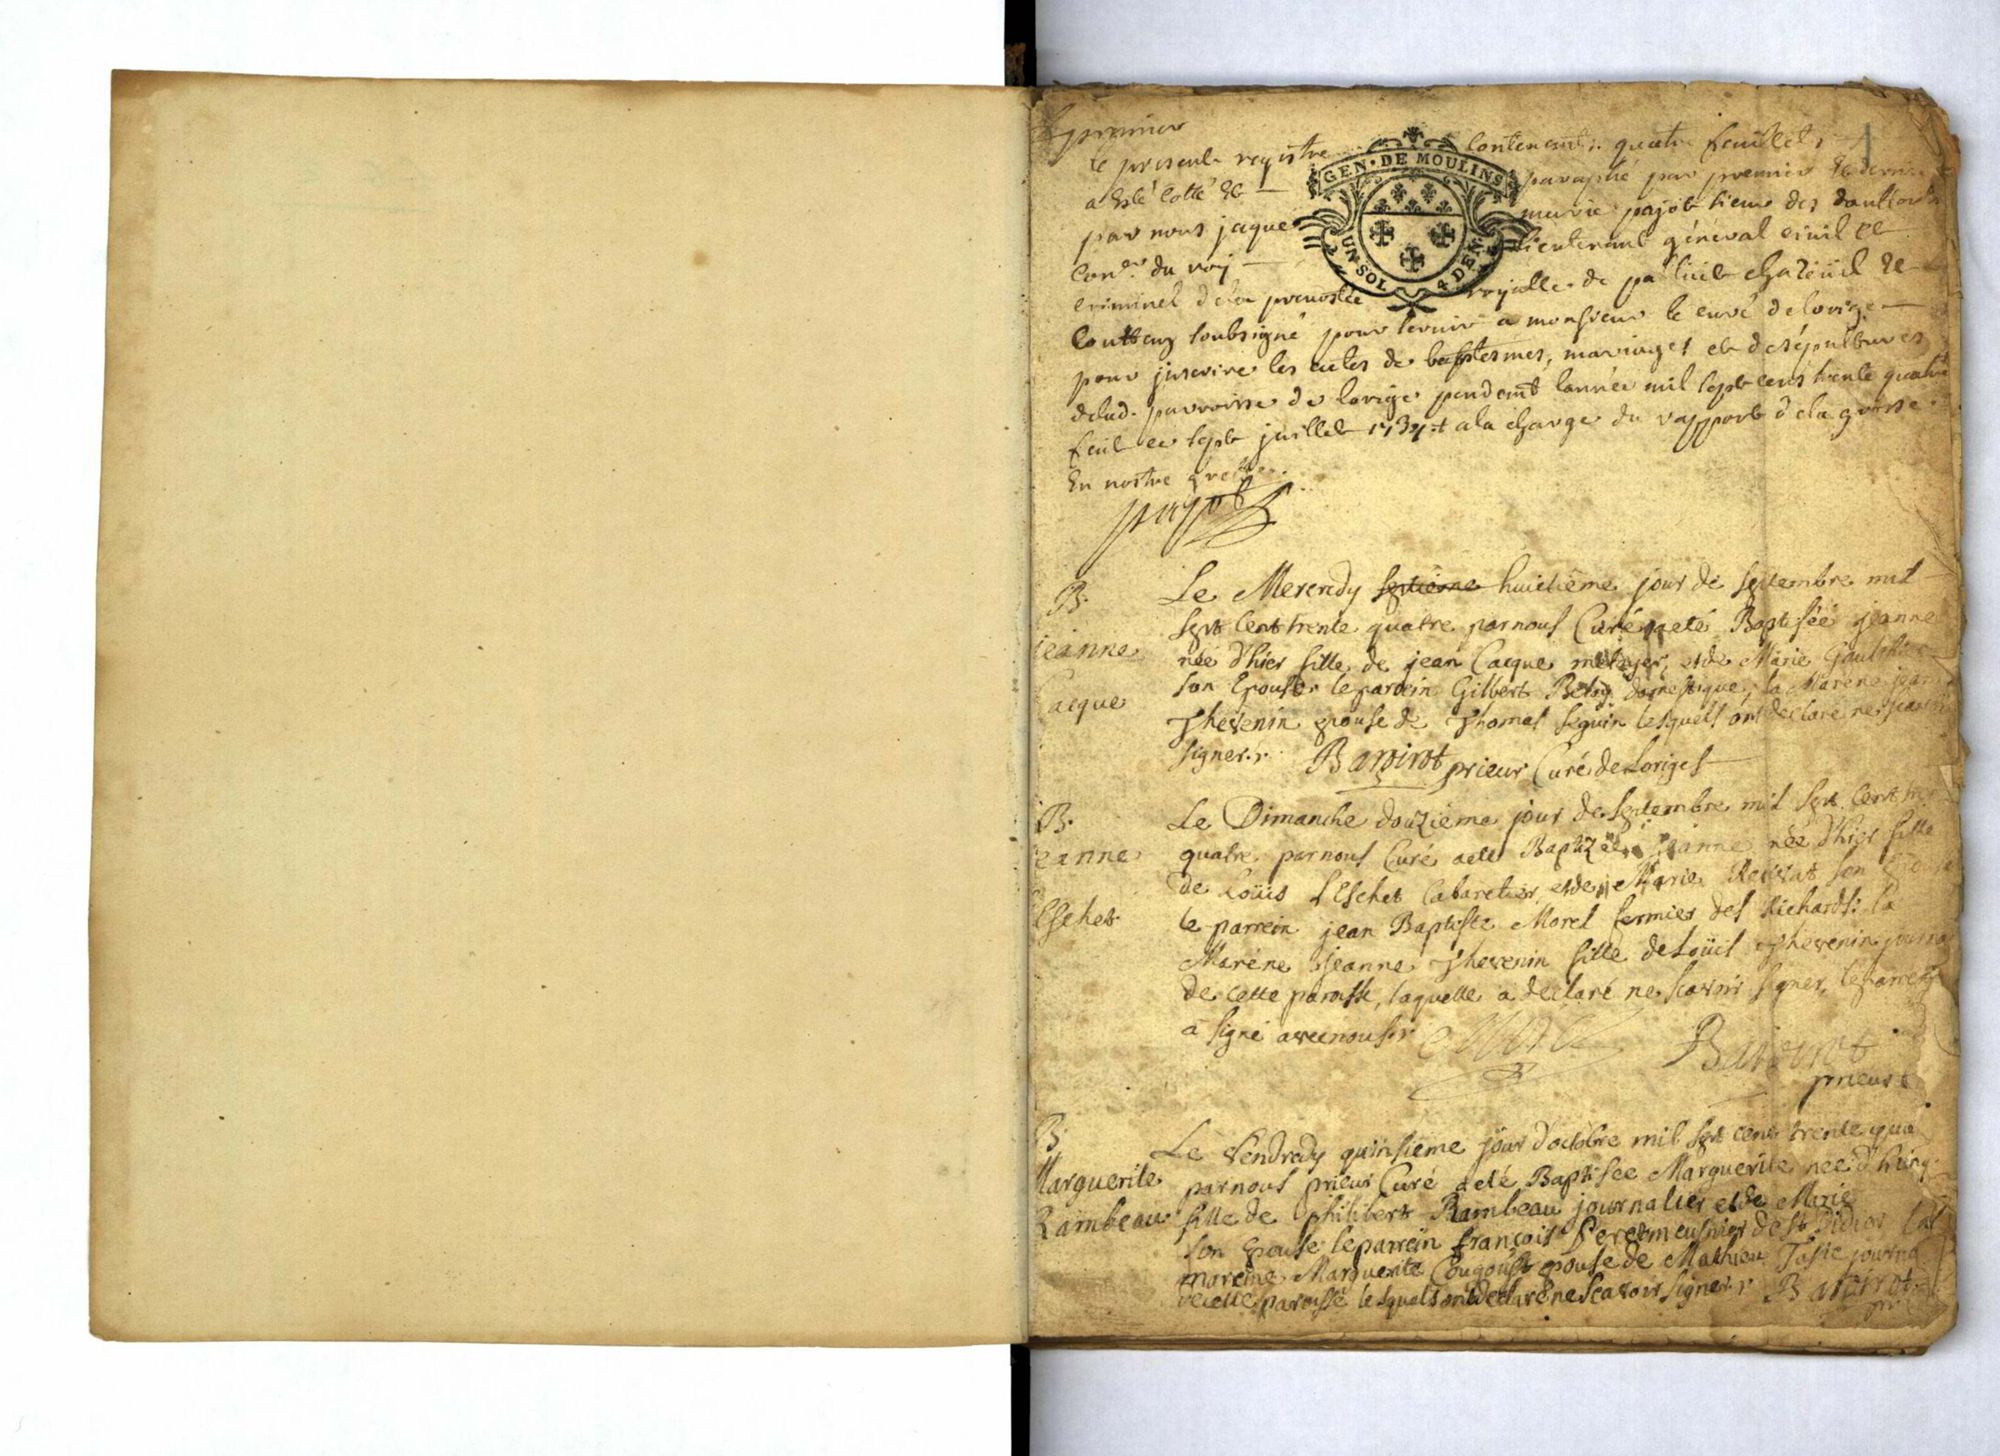 premier
1
GEN · DE MOULINS
UN · SOL 4 DEN ·
Le present registre contenant quatre feuillets
a esté cotté et paraphé par premier et dernier
par nous jaque marie pajot sieur des
Con.er du roy lieutenant général civil et
criminel de la prevosté royalle de
soubsigné pour servir a monsieur le curé de lorige
pour inscrire les actes de baptesmes, mariages et de sépultures
delad. parroisse de lorige pendant lannée mil sept cens trente quatre
ce sept juillet 1734 a la charge du rapport de la grosse
En nostre greffe
pajot
B.
jeanne
Cacque
Le Mercredy septième huictième jour de septembre mil
sept Cent trente quatre par nous Curé a eté Baptisée jeanne
née d'hier fille de jean Cacque métayer, et de Marie
son Epouse le parein Gilbert domestique, la Marene jeanne
Thevenin epouse de Thomas seguin lesquels ont declaré ne scavoir
signer. Baroirot prieur Curé de Loriges
B.
jeanne
LEschet
Le Dimanche douzième jour de septembre mil sept Cent
quatre par nous Curé a eté Baptizée jeanne née d'hier fille
de Loüis LEschet Cabaretier, et de Marie son Epouse
le parrein jean Baptiste Morel fermier des Richards la
Marène jeanne Thevenin fille de Loüis Thevenin
de cette paroisse, laquelle a declaré ne scavoir signer, le parrein
a signé avec nous
Morel Baroirot
prieur
B
Marguerite
Rambeau
Le Vendredy quinsième jour d'octobre mil sept cent trente
par nous prieur Curé a eté Baptisée Marguerite née d'hier
fille de Philibert Rambeau journalier et de Marie
son Epouse le parrein françois meusnier de St Didier la
mareine Marguerite epouse de Mathieu
de cette paroisse lesquels ont declaré ne scavoir signer Baroirot